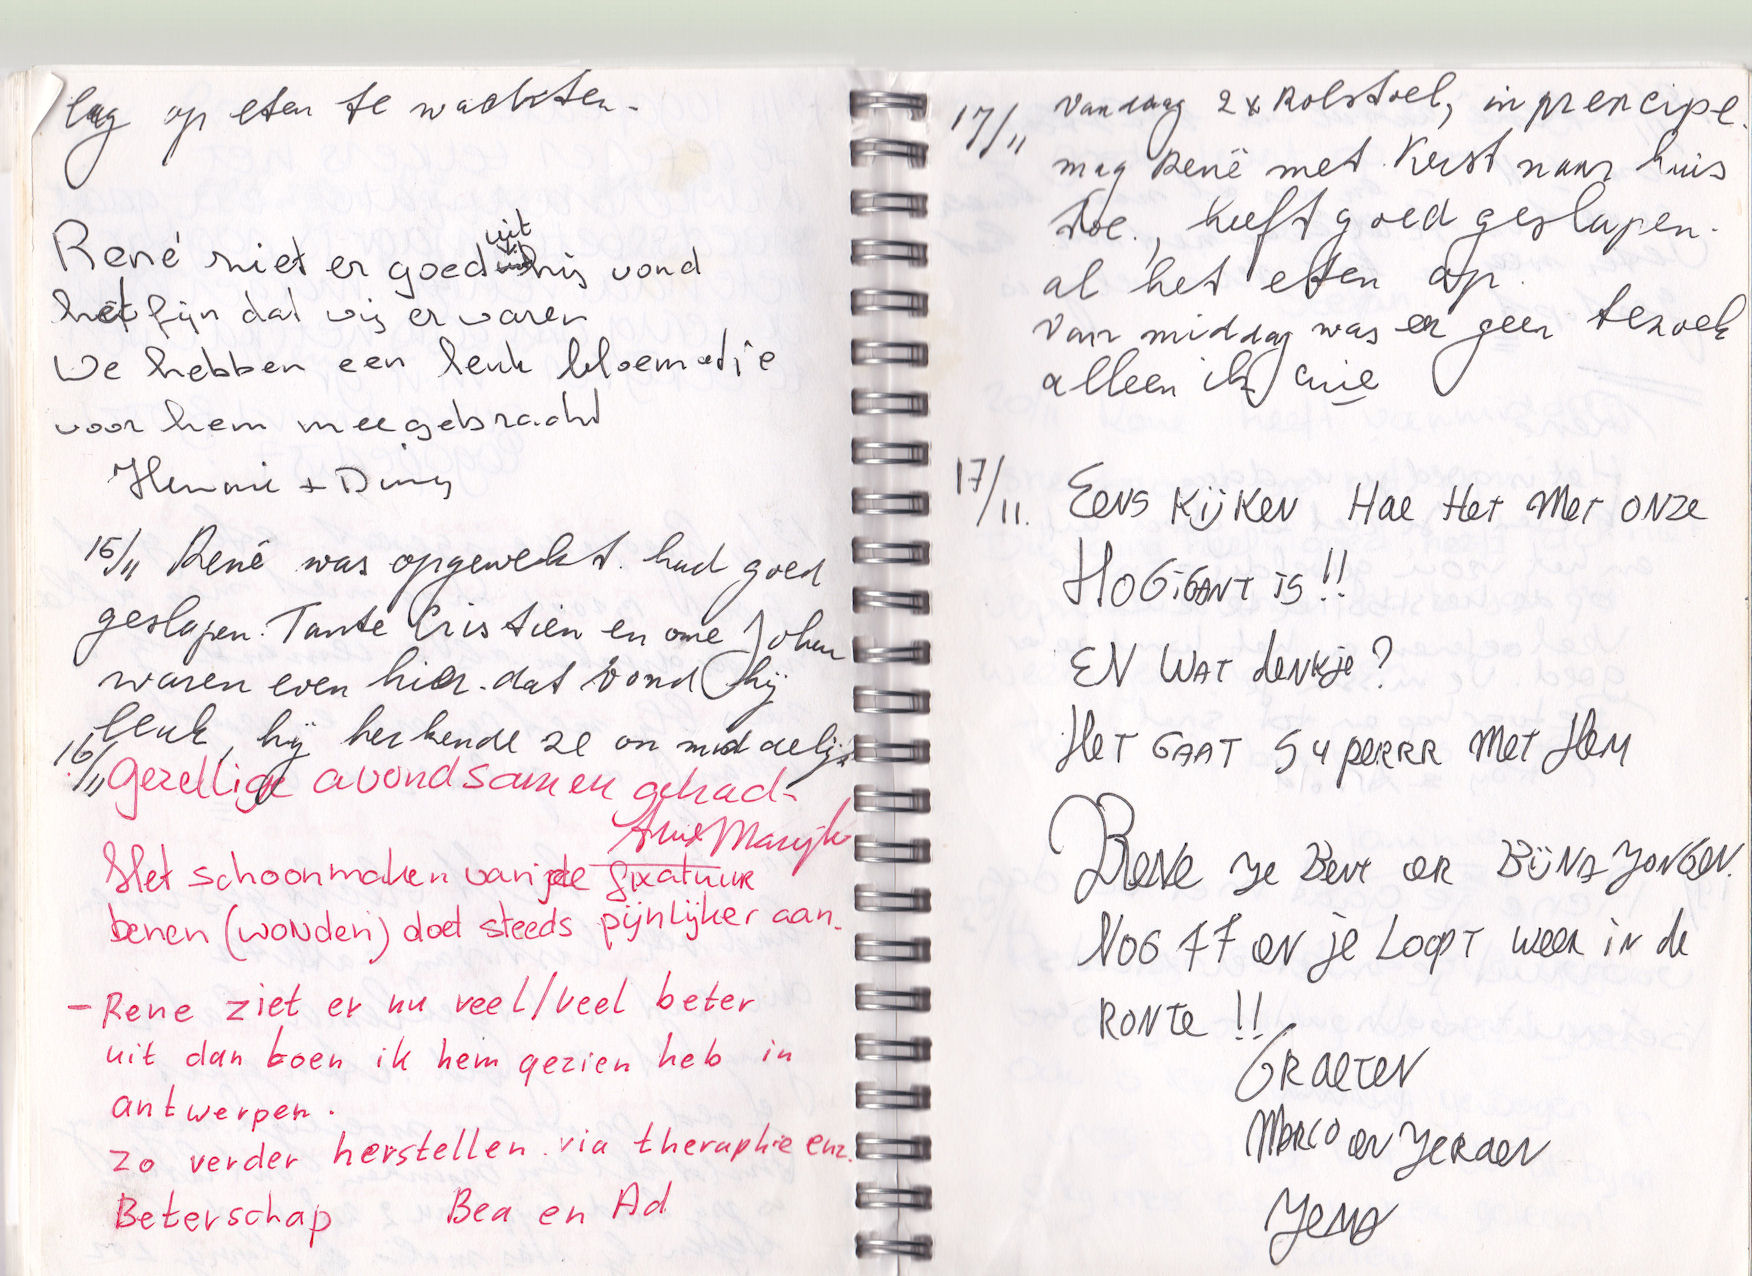 lag op eten te wachten.
René niet er goed uit hij vond
het fijn dat wij er waren
We hebben een leuk bloemetje
voor hem meegebracht
Hennie + Diny
15/11 René was opgewekt. had goed
geslapen. Tante Cristien en ome Johan
waren even hier. dat vond hij
leuk, hij herkende ze onmiddelijk
16/11 Gezellige avond samen gehad-
Marijke
Het schoonmaken van de fixatuur
benen (wonden) doet steeds pijnlijker aan.
- Rene ziet er nu veel/veel beter
uit dan toen ik hem gezien heb in
antwerpen.
Zo verder herstellen via theraphie enz.
Beterschap Bea en Ad
17/11 Vandaag 2x Rolstoel, in prencipe.
mag René met Kerst naar huis
toe., heeft goed geslapen.
al het eten op.
Van middag was er geen bezoek
alleen ik
17/11. EENS KijKEN HOE HET MET ONZE
HOGiGANT iS!!
EN WAT denkje?
HET GAAT SuperRR Met HEM
RENE JE BENT ER BijNA JONGEN.
NOG FF EN je LOOPT WEER iN de
RONTE!!
GROETEN
MARCO EN JEROEN